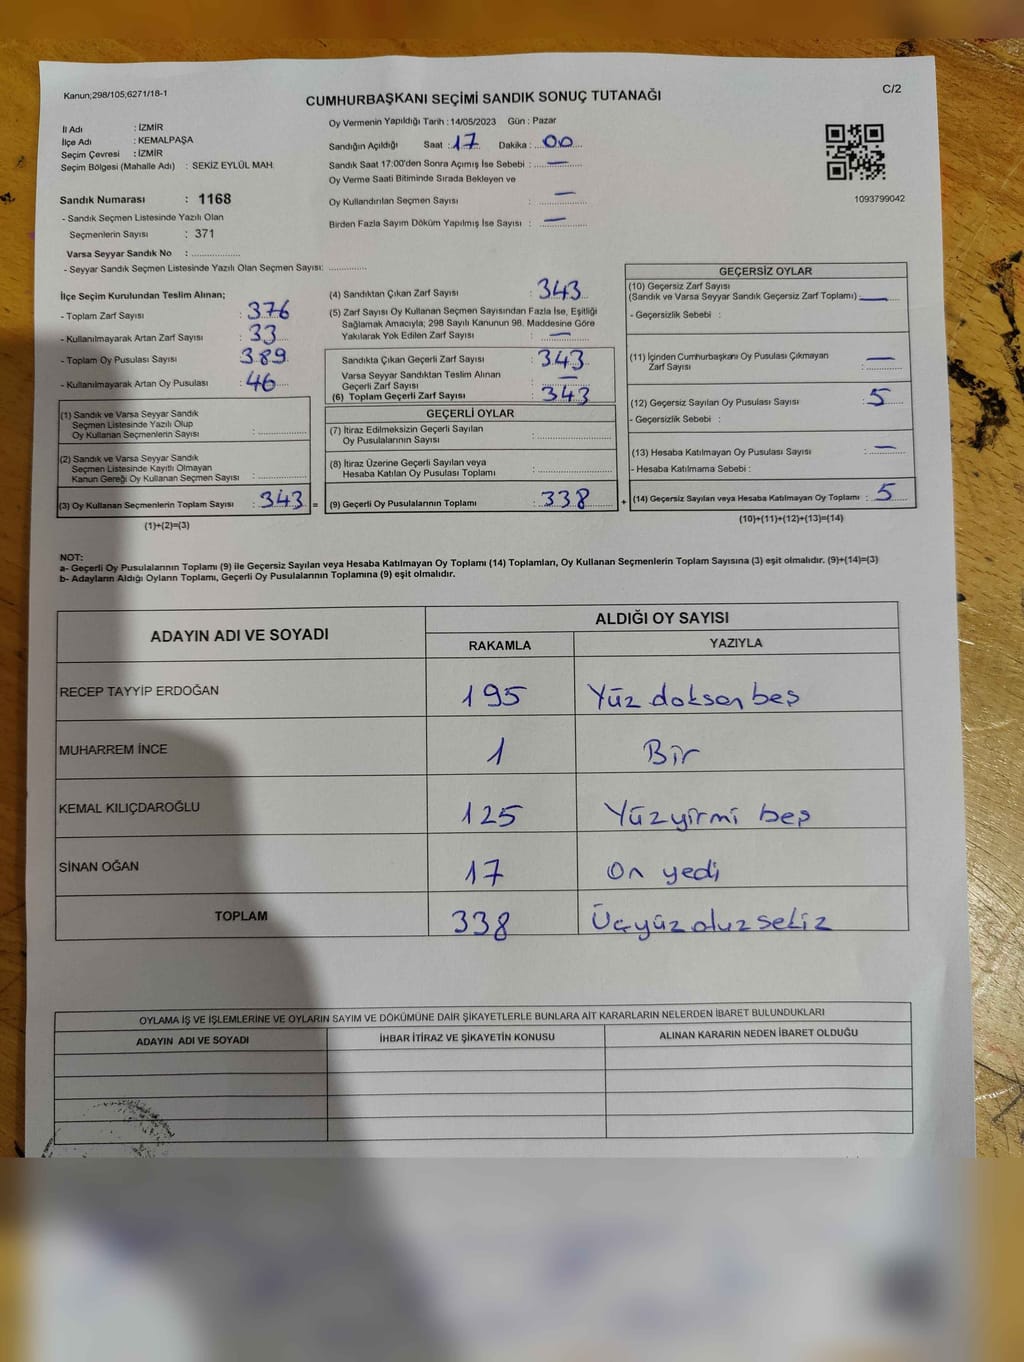 Kanun;298/105;6271/18-1
C/2
CUMHURBAŞKANI SEÇİMİ SANDIK SONUÇ TUTANAĞI
İl Adı : İZMİR
İlçe Adı : KEMALPAŞA
Seçim Çevresi : İZMİR
Seçim Bölgesi (Mahalle Adı) : SEKİZ EYLÜL MAH.
Sandık Numarası : 1168
- Sandık Seçmen Listesinde Yazılı Olan
Seçmenlerin Sayısı : 371
Varsa Seyyar Sandık No : ....................
- Seyyar Sandık Seçmen Listesinde Yazılı Olan Seçmen Sayısı: ...............
Oy Vermenin Yapıldığı Tarih : 14/05/2023 Gün : Pazar
Sandığın Açıldığı Saat : 17 Dakika : 00
Sandık Saat 17:00'den Sonra Açımış İse Sebebi : —
Oy Verme Saati Bitiminde Sırada Bekleyen ve
Oy Kullandırılan Seçmen Sayısı : —
Birden Fazla Sayım Döküm Yapılmış İse Sayısı : —
1093799042
İlçe Seçim Kurulundan Teslim Alınan;
- Toplam Zarf Sayısı : 376
- Kullanılmayarak Artan Zarf Sayısı : 33
- Toplam Oy Pusulası Sayısı : 389
- Kullanılmayarak Artan Oy Pusulası : 46
(1) Sandık ve Varsa Seyyar Sandık
Seçmen Listesinde Yazılı Olup
Oy Kullanan Seçmenlerin Sayısı : ...............
(2) Sandık ve Varsa Seyyar Sandık
Seçmen Listesinde Kayıtlı Olmayan
Kanun Gereği Oy Kullanan Seçmen Sayısı : ...............
(3) Oy Kullanan Seçmenlerin Toplam Sayısı : 343 =
(1)+(2)=(3)
(4) Sandıktan Çıkan Zarf Sayısı : 343
(5) Zarf Sayısı Oy Kullanan Seçmen Sayısından Fazla İse, Eşitliği
Sağlamak Amacıyla; 298 Sayılı Kanunun 98. Maddesine Göre
Yakılarak Yok Edilen Zarf Sayısı : —
Sandıkta Çıkan Geçerli Zarf Sayısı : 343
Varsa Seyyar Sandıktan Teslim Alınan
Geçerli Zarf Sayısı : —
(6) Toplam Geçerli Zarf Sayısı : 343
GEÇERLİ OYLAR
(7) İtiraz Edilmeksizin Geçerli Sayılan
Oy Pusulalarının Sayısı : ...............
(8) İtiraz Üzerine Geçerli Sayılan veya
Hesaba Katılan Oy Pusulası Toplamı : ...............
(9) Geçerli Oy Pusulalarının Toplamı : 338 +
GEÇERSİZ OYLAR
(10) Geçersiz Zarf Sayısı
(Sandık ve Varsa Seyyar Sandık Geçersiz Zarf Toplamı) : —
- Geçersizlik Sebebi :
(11) İçinden Cumhurbaşkanı Oy Pusulası Çıkmayan
Zarf Sayısı : —
(12) Geçersiz Sayılan Oy Pusulası Sayısı : 5
- Geçersizlik Sebebi :
(13) Hesaba Katılmayan Oy Pusulası Sayısı : —
- Hesaba Katılmama Sebebi :
(14) Geçersiz Sayılan veya Hesaba Katılmayan Oy Toplamı : 5
(10)+(11)+(12)+(13)=(14)
NOT:
a- Geçerli Oy Pusulalarının Toplamı (9) ile Geçersiz Sayılan veya Hesaba Katılmayan Oy Toplamı (14) Toplamları, Oy Kullanan Seçmenlerin Toplam Sayısına (3) eşit olmalıdır. (9)+(14)=(3)
b- Adayların Aldığı Oyların Toplamı, Geçerli Oy Pusulalarının Toplamına (9) eşit olmalıdır.
ADAYIN ADI VE SOYADI ALDIĞI OY SAYISI
RAKAMLA YAZIYLA
RECEP TAYYİP ERDOĞAN 195 Yüz doksan beş
MUHARREM İNCE 1 Bir
KEMAL KILIÇDAROĞLU 125 Yüzyirmi beş
SİNAN OĞAN 17 On yedi
TOPLAM 338 Üçyüz otuz sekiz
OYLAMA İŞ VE İŞLEMLERİNE VE OYLARIN SAYIM VE DÖKÜMÜNE DAİR ŞİKAYETLERLE BUNLARA AİT KARARLARIN NELERDEN İBARET BULUNDUKLARI
ADAYIN ADI VE SOYADI İHBAR İTİRAZ VE ŞİKAYETİN KONUSU ALINAN KARARIN NEDEN İBARET OLDUĞU